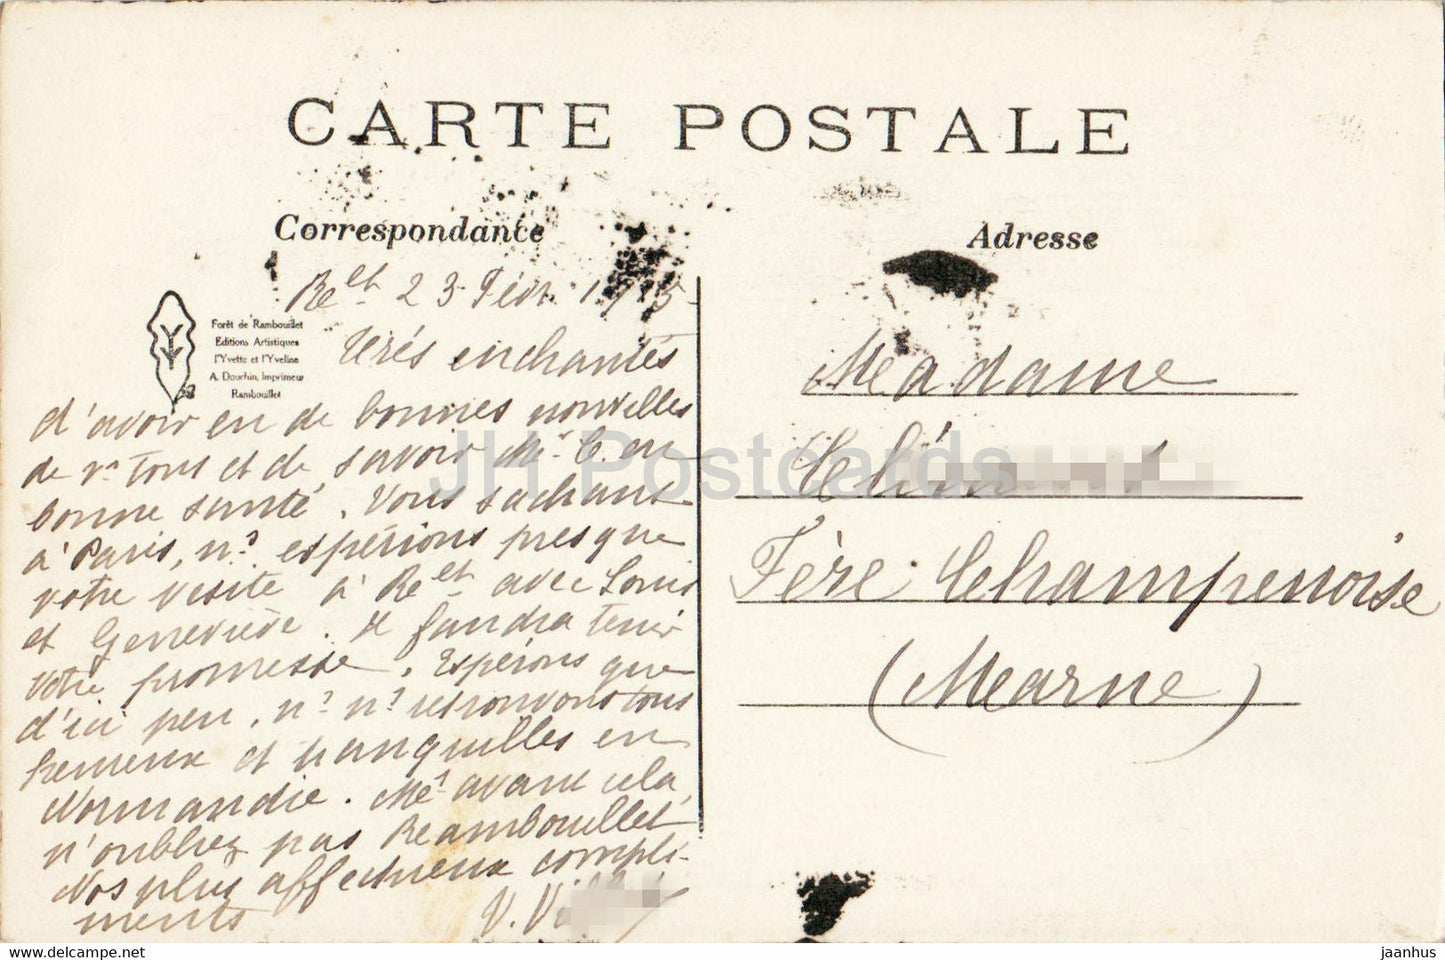 CARTE POSTALE
Correspondance
Adresse
Forêt de Rambouillet
Editions Artistiques
l'Yvette et l'Yveline
A. Douchin, Imprimeur
Rambouillet
Ret 23 Févr. 1915
Très enchantés
d'avoir eu de bonnes nouvelles
de vs tous et de savoir Mr C. en
bonne santé. Vous sachant
à Paris, ns espérions presque
votre visite à Ret avec Louis
et Geneviève. Il faudra tenir
votre promesse. Espérons que
d'ici peu, ns ns retrouvons tous
heureux et tranquilles en
Normandie. Mê avant cela,
n'oubliez pas Rambouillet
Nos plus affectueux compli-
ments V. Vi
Madame
Clém
Fère Champenoise
(Marne)
JH Postcards
https://hippostcard.com
jaanhus